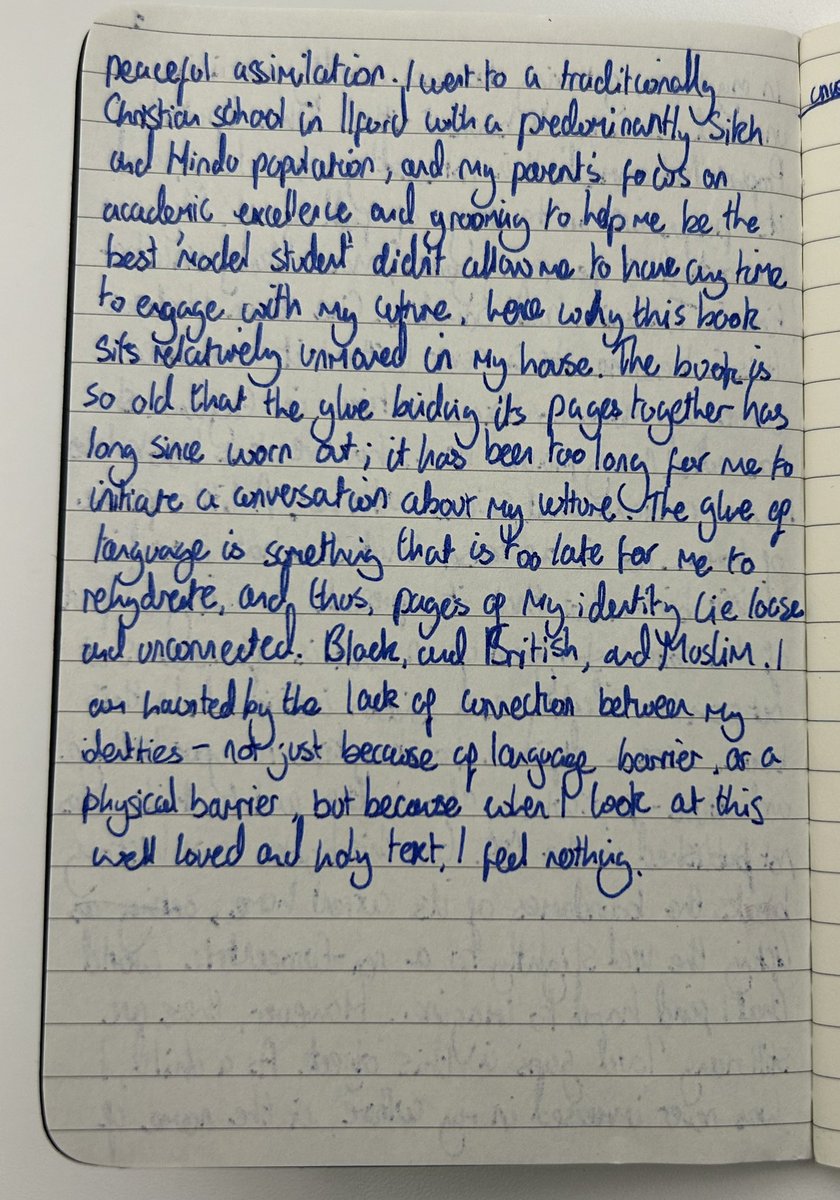 peaceful assimilation. I went to a traditionally
Christian school in Ilford with a predominantly Sikh
and Hindu population, and my parent's focus on
academic excellence and grooming to help me be the
best 'model student' didn't allow me to have any time
to engage with my culture, hence why this book
sits relatively unmoved in my house. The book is
so old that the glue binding its pages together has
long since worn out; it has been too long for me to
initiate a conversation about my culture. The glue of
language is something that is too late for me to
rehydrate, and, thus, pages of my identity lie loose
and unconnected. Black, and British, and Muslim. I
am haunted by the lack of connection between my
identities - not just because of language barrier, or a
physical barrier, but because when I look at this
well loved and holy text, I feel nothing.